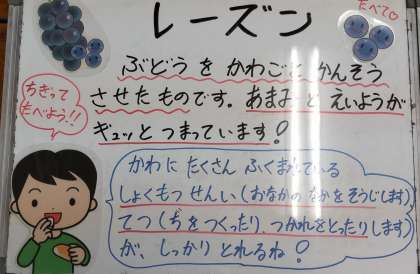 レーズン
たべて♡
ぶどう を かわごと かんそう
させた ものです。あまみ と えいようが
ギュッと つまっています!
ちぎって
たべよう!!
かわに たくさん ふくまれている
しょくもつ せんい (おなかの なかを そうじします)、
てつ (ちを つくったり、つかれを とったりします)
が、しっかり とれるね!